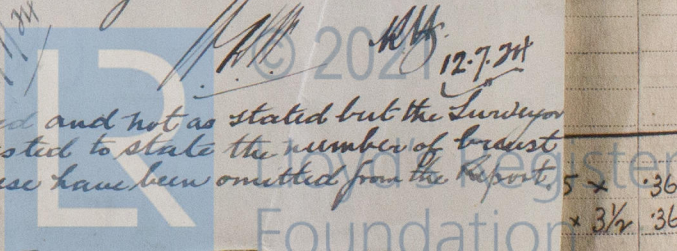 12.7.24
and not as stated but the Surveyor
to state the number of breast
have been omitted from the Report.
5 x .36
x 3½ .36
LR
© 2021
Lloyd's Register
Foundation